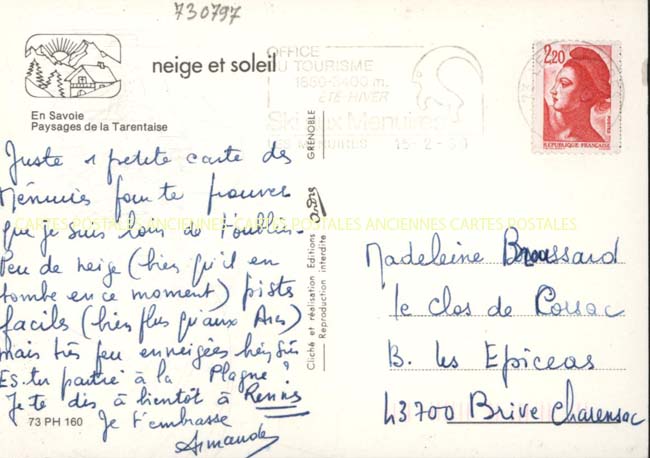 730797
neige et soleil
OFFICE
DU TOURISME
1850-3400 m.
ÉTÉ-HIVER
Ski aux Menuires
LES MENUIRES 15-2-
2,20
REPUBLIQUE FRANÇAISE
En Savoie
Paysages de la Tarentaise
Juste 1 petite carte des
Ménuires pour te prouver
que je suis loin de t'oublier.
Peu de neige (bien qu'il en
tombe en ce moment) pistes
faciles (bien plus qu'aux Arcs)
mais très peu enneigées
Es-tu partie à la Plagne ?
Je te dis à bientôt à
Je t'embrasse
Armande
73 PH 160
Cliché et réalisation Editions André GRENOBLE
Reproduction interdite
CARTES POSTALES ANCIENNES CARTES POSTALES ANCIENNES CARTES POSTALES
Madeleine Broussard
le clos de Corsac
B. les Epiceas
43700 Brive Charensac